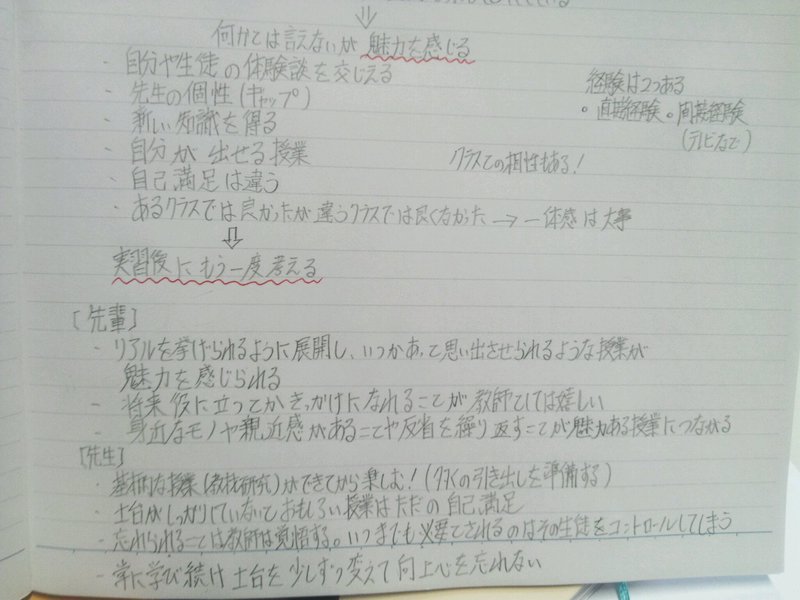 何かとは言えないが魅力を感じる
・自分や生徒の体験談を交じえる
・先生の個性(ギャップ)
・新しい知識を得る
・自分が出せる授業
・自己満足は違う
・あるクラスでは良かったが違うクラスでは良くなかった → 一体感は大事
経験は2つある
・直接経験・間接経験
(テレビなど)
クラスとの相性もある!
実習後にもう一度考える
[先輩]
・リアルを挙げられるように展開し、いつかあって思い出させられるような授業が
魅力を感じられる
・将来役に立つとかきっかけになれることが教師としては嬉しい
・身近なモノや親近感があることや反省を繰り返すことが魅力ある授業につながる
[先生]
・基本的な授業(教材研究)ができてから楽しむ!(多くの引き出しを準備する)
・土台がしっかりしていないとおもしろい授業はただの自己満足
・忘れられることは教師は覚悟する。いつまでも必要とされるのはその生徒をコントロールしてしまう
・常に学び続け土台を少しずつ変えて向上心を忘れない